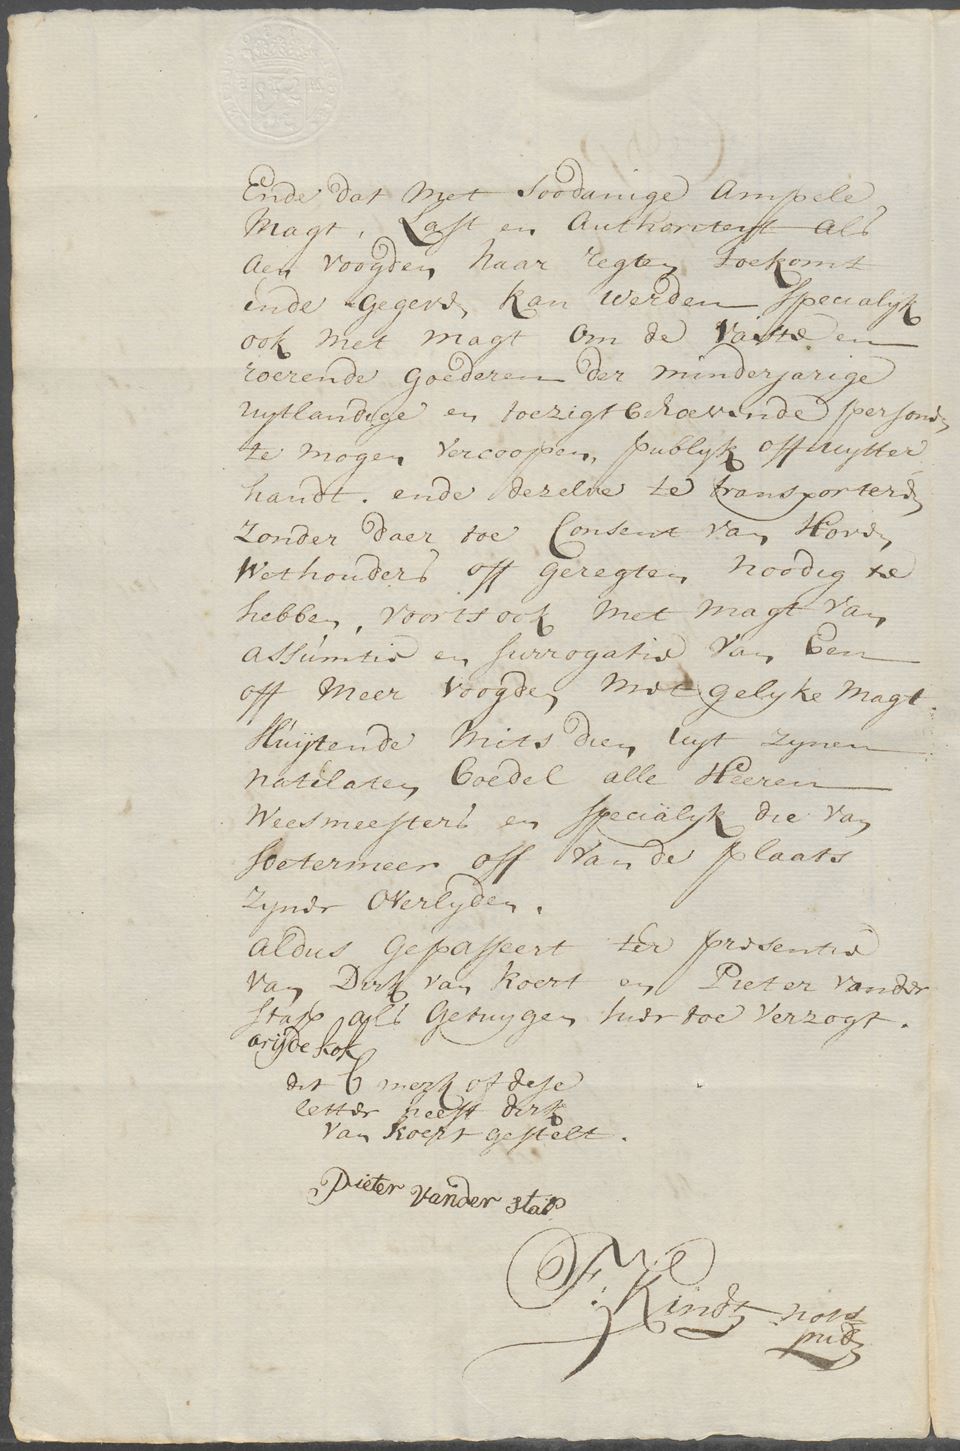 Ende dat met soodanige Ampele
Magt, Last en Authoriteyt als
aen voogden haar regten toekomt
ende gegeven kan werden specialyk
ook met magt om de vaste en
roerende goederen der minderjarige
uytlandige en toezigtbehoevende persoonen
te mogen vercoopen, publyk off uytter
handt. ende dezelve te transporteren
zonder daer toe Consent van Hoven
Wethouders off geregten noodig te
hebben, voorts ook met magt van
assumtie en surrogatie van een
off meer voogden met gelyke magt.
Sluijtende mits dien uyt zynen
natelaten boedel alle Heeren
Weesmeesters en speciälyk die van
Soetermeer off van de plaats
zyner overlyden.
Aldus gepasseert ter presentie
van Dirk van Koert en Pieter vander
Stap als getuygen hier toe verzogt.
arijde kok
dit merk of dese
letter heeft dirk
van Koert gestelt.
Pieter vander stap
F: Kindt nots
pub